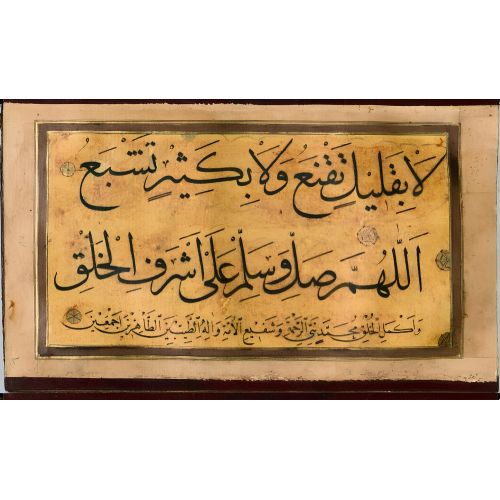 لَا بِقَلِيلٍ تَقْنَعُ وَلَا بِكَثِيْرٍ تَشْبَعُ
اَللّٰهُمَّ صَلِّ وَسَلِّمْ عَلٰى اَشْرَفِ الْخَلْقِ
وَاَكْمَلِ الْخُلُقِ مُحَمَّدٍ نَبِيِّ الرَّحْمَةِ وَشَفِيعِ الْاُمَّةِ وَاٰلِهِ الطَّيِّبِينَ الطَّاهِرِينَ اَجْمَعِينَ